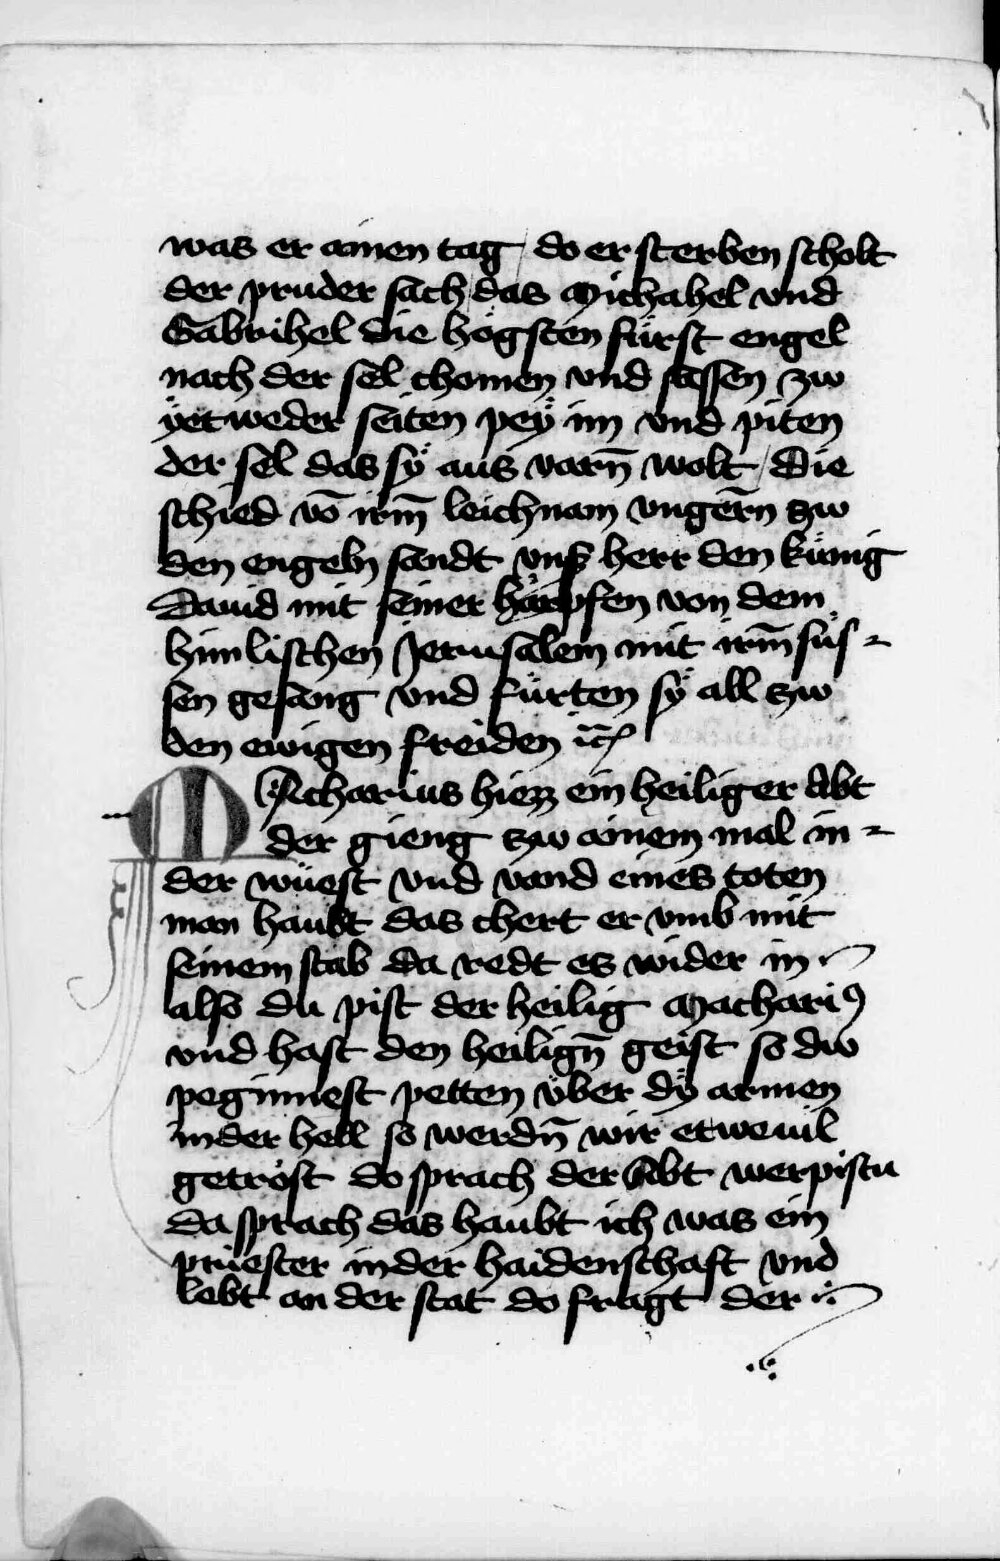 was er ainen tag / do er sterben scholt
der pruder sach / das Michahel vnd
Gabrihel die högsten fürst engel
nach der sel chomen vnd sassen zw
ÿetweder seiten peÿ im vnd piten
der sel das sÿ aus varn̄ wolt / Die
schied vō irm̄ leichnam vngern̄ zw
den engeln sandt vnß herr den künig
Dauid mit seiner härpfen von dem
himlischen Jerusalem mit irm̄ süs-
sen gesang vnd fürten sÿ all zw
den ewigen freiden ic̄
MAcharius hiez ein heiliger Abt
der gieng zw ainem mal in-
der wüest vnd vand eines toten
man haubt das chert er vmb mit
seinem stab da redt es wider in
also du pist der heilig Machariꝰ
vnd hast den heilign̄ geist so dw
peginnest petten vͤber dÿ armen
in der hell so werdn̄ wir etweuil
getröst do sprach der Abt wer pistu
da sprach das haubt ich was ein
prüester in der haidenschaft vnd
lebt an der stat do fragt der